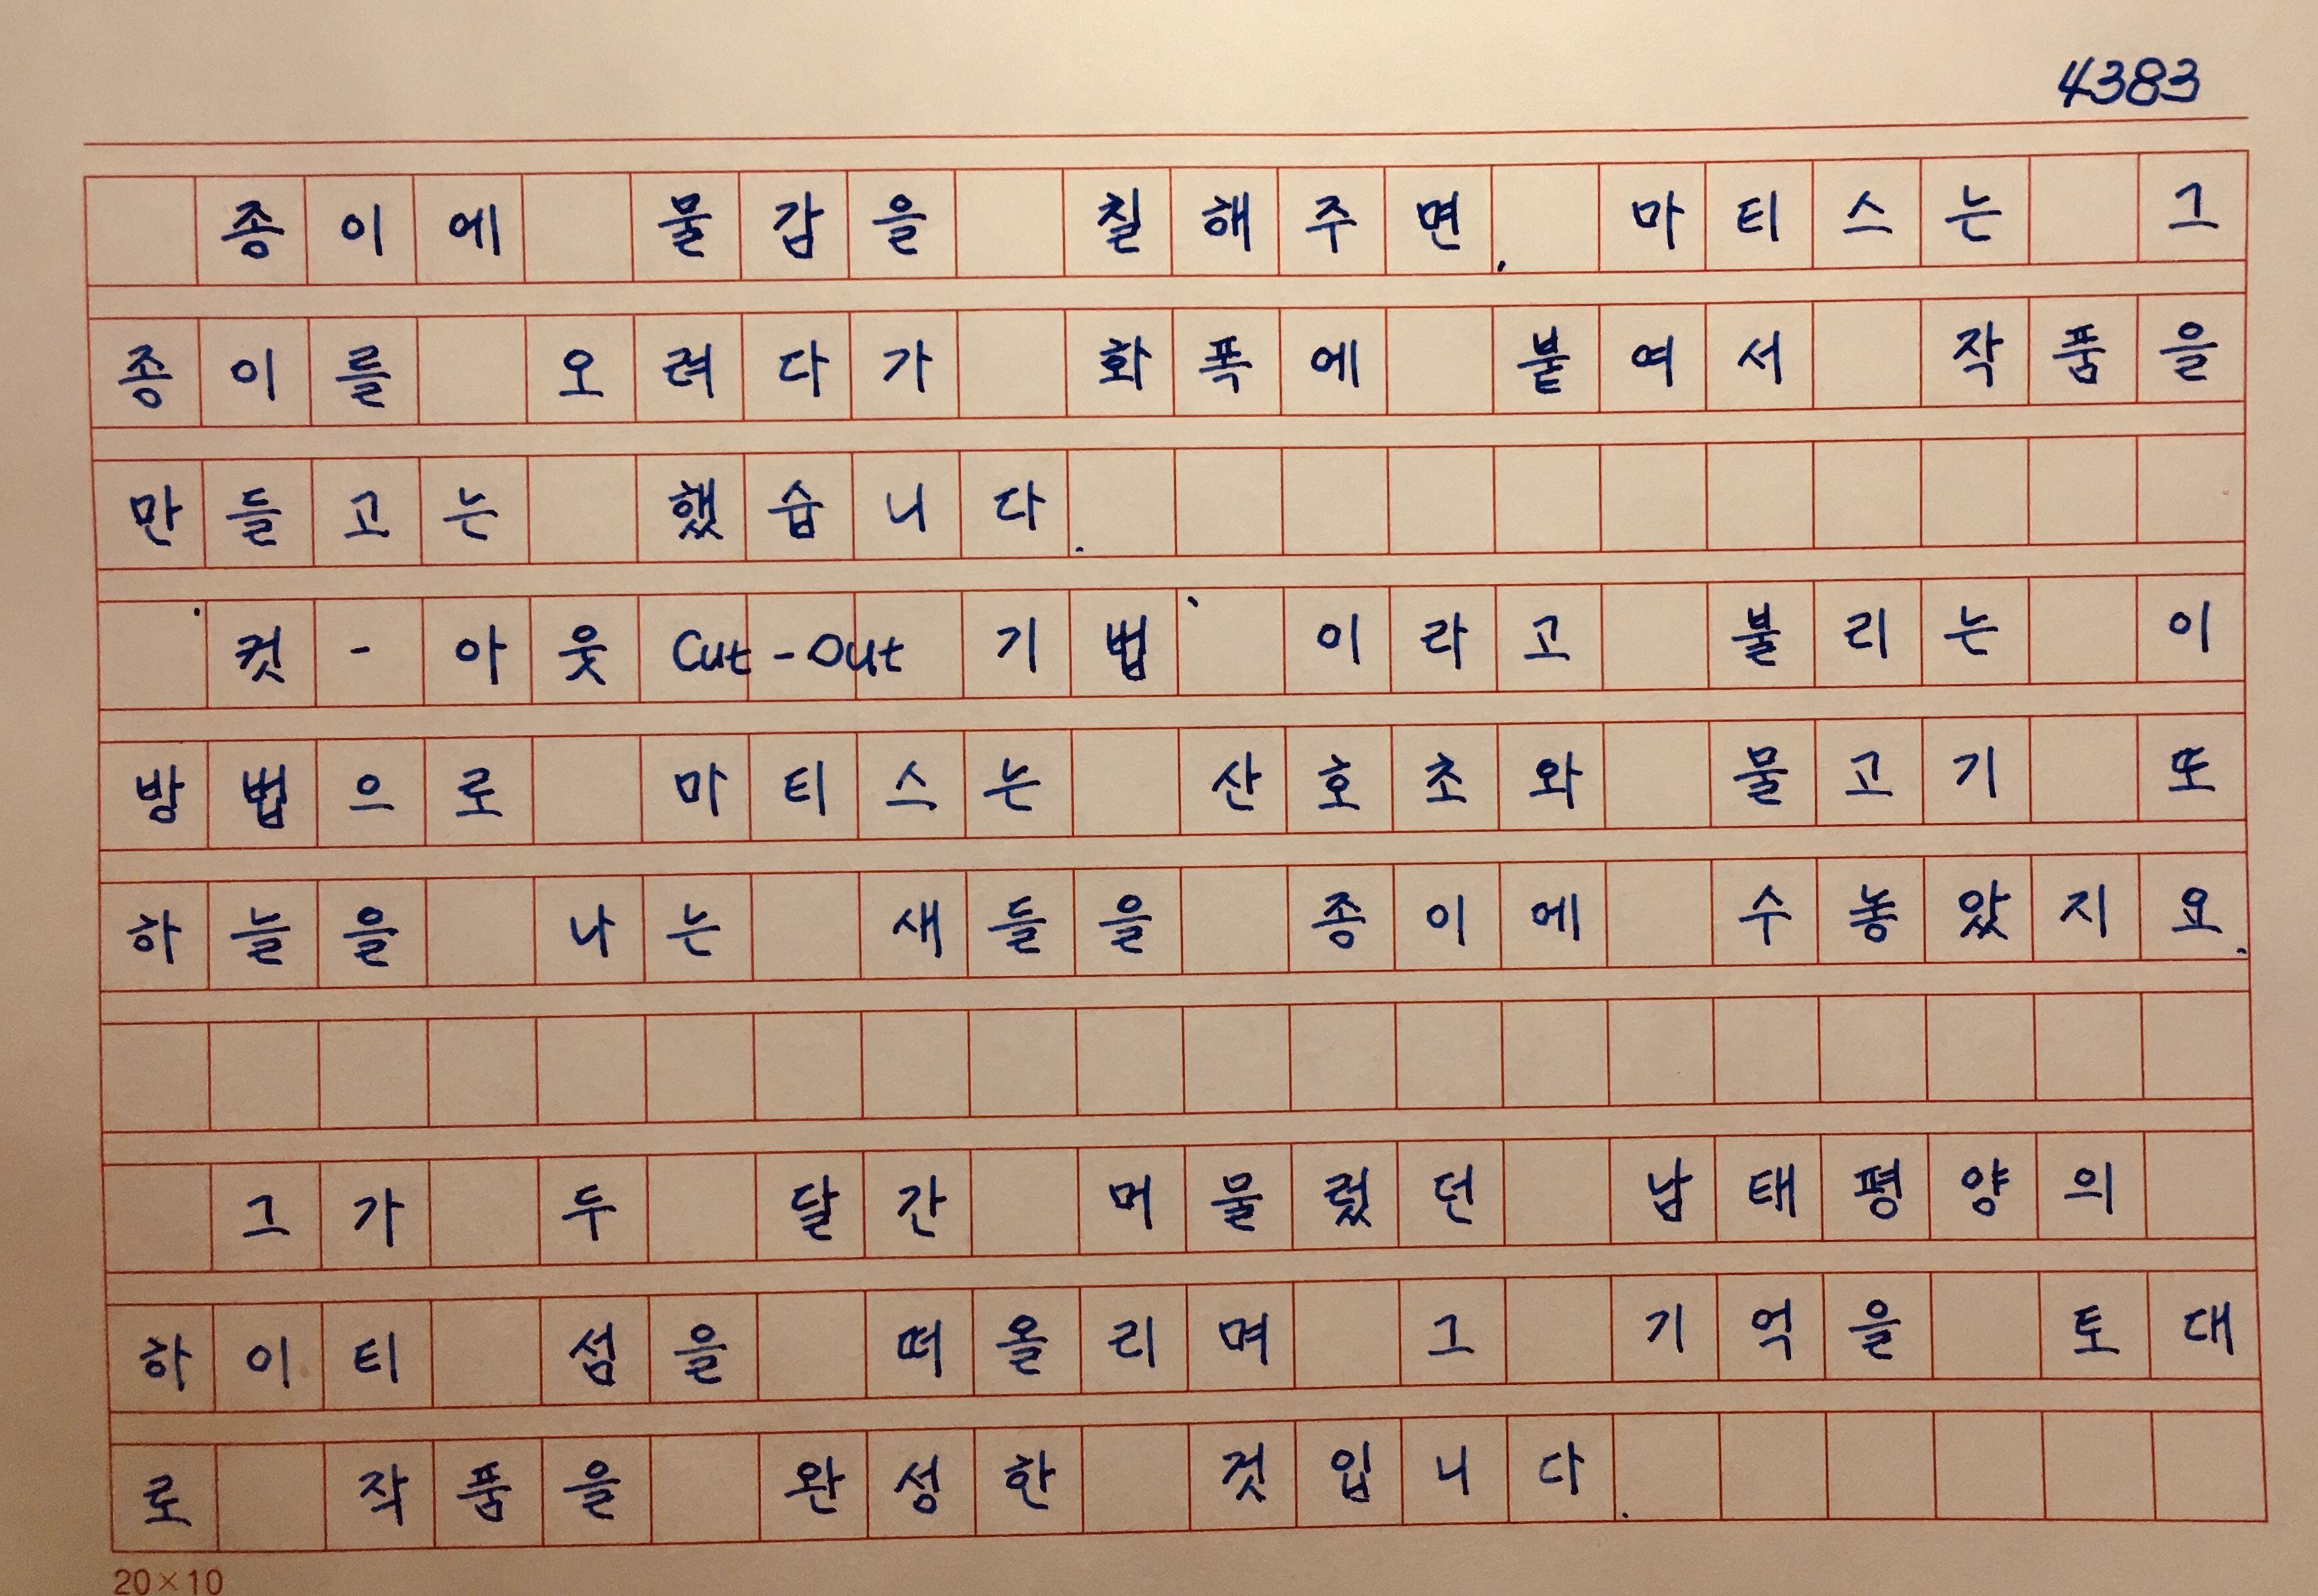 4383
종이에 물감을 칠해주면, 마티스는 그
종이를 오려다가 화폭에 붙여서 작품을
만들고는 했습니다.
'컷-아웃 Cut-Out 기법'이라고 불리는 이
방법으로 마티스는 산호초와 물고기 또
하늘을 나는 새들을 종이에 수놓았지요.
그가 두 달간 머물렀던 남태평양의
하이티 섬을 떠올리며 그 기억을 토대
로 작품을 완성한 것입니다.
20×10